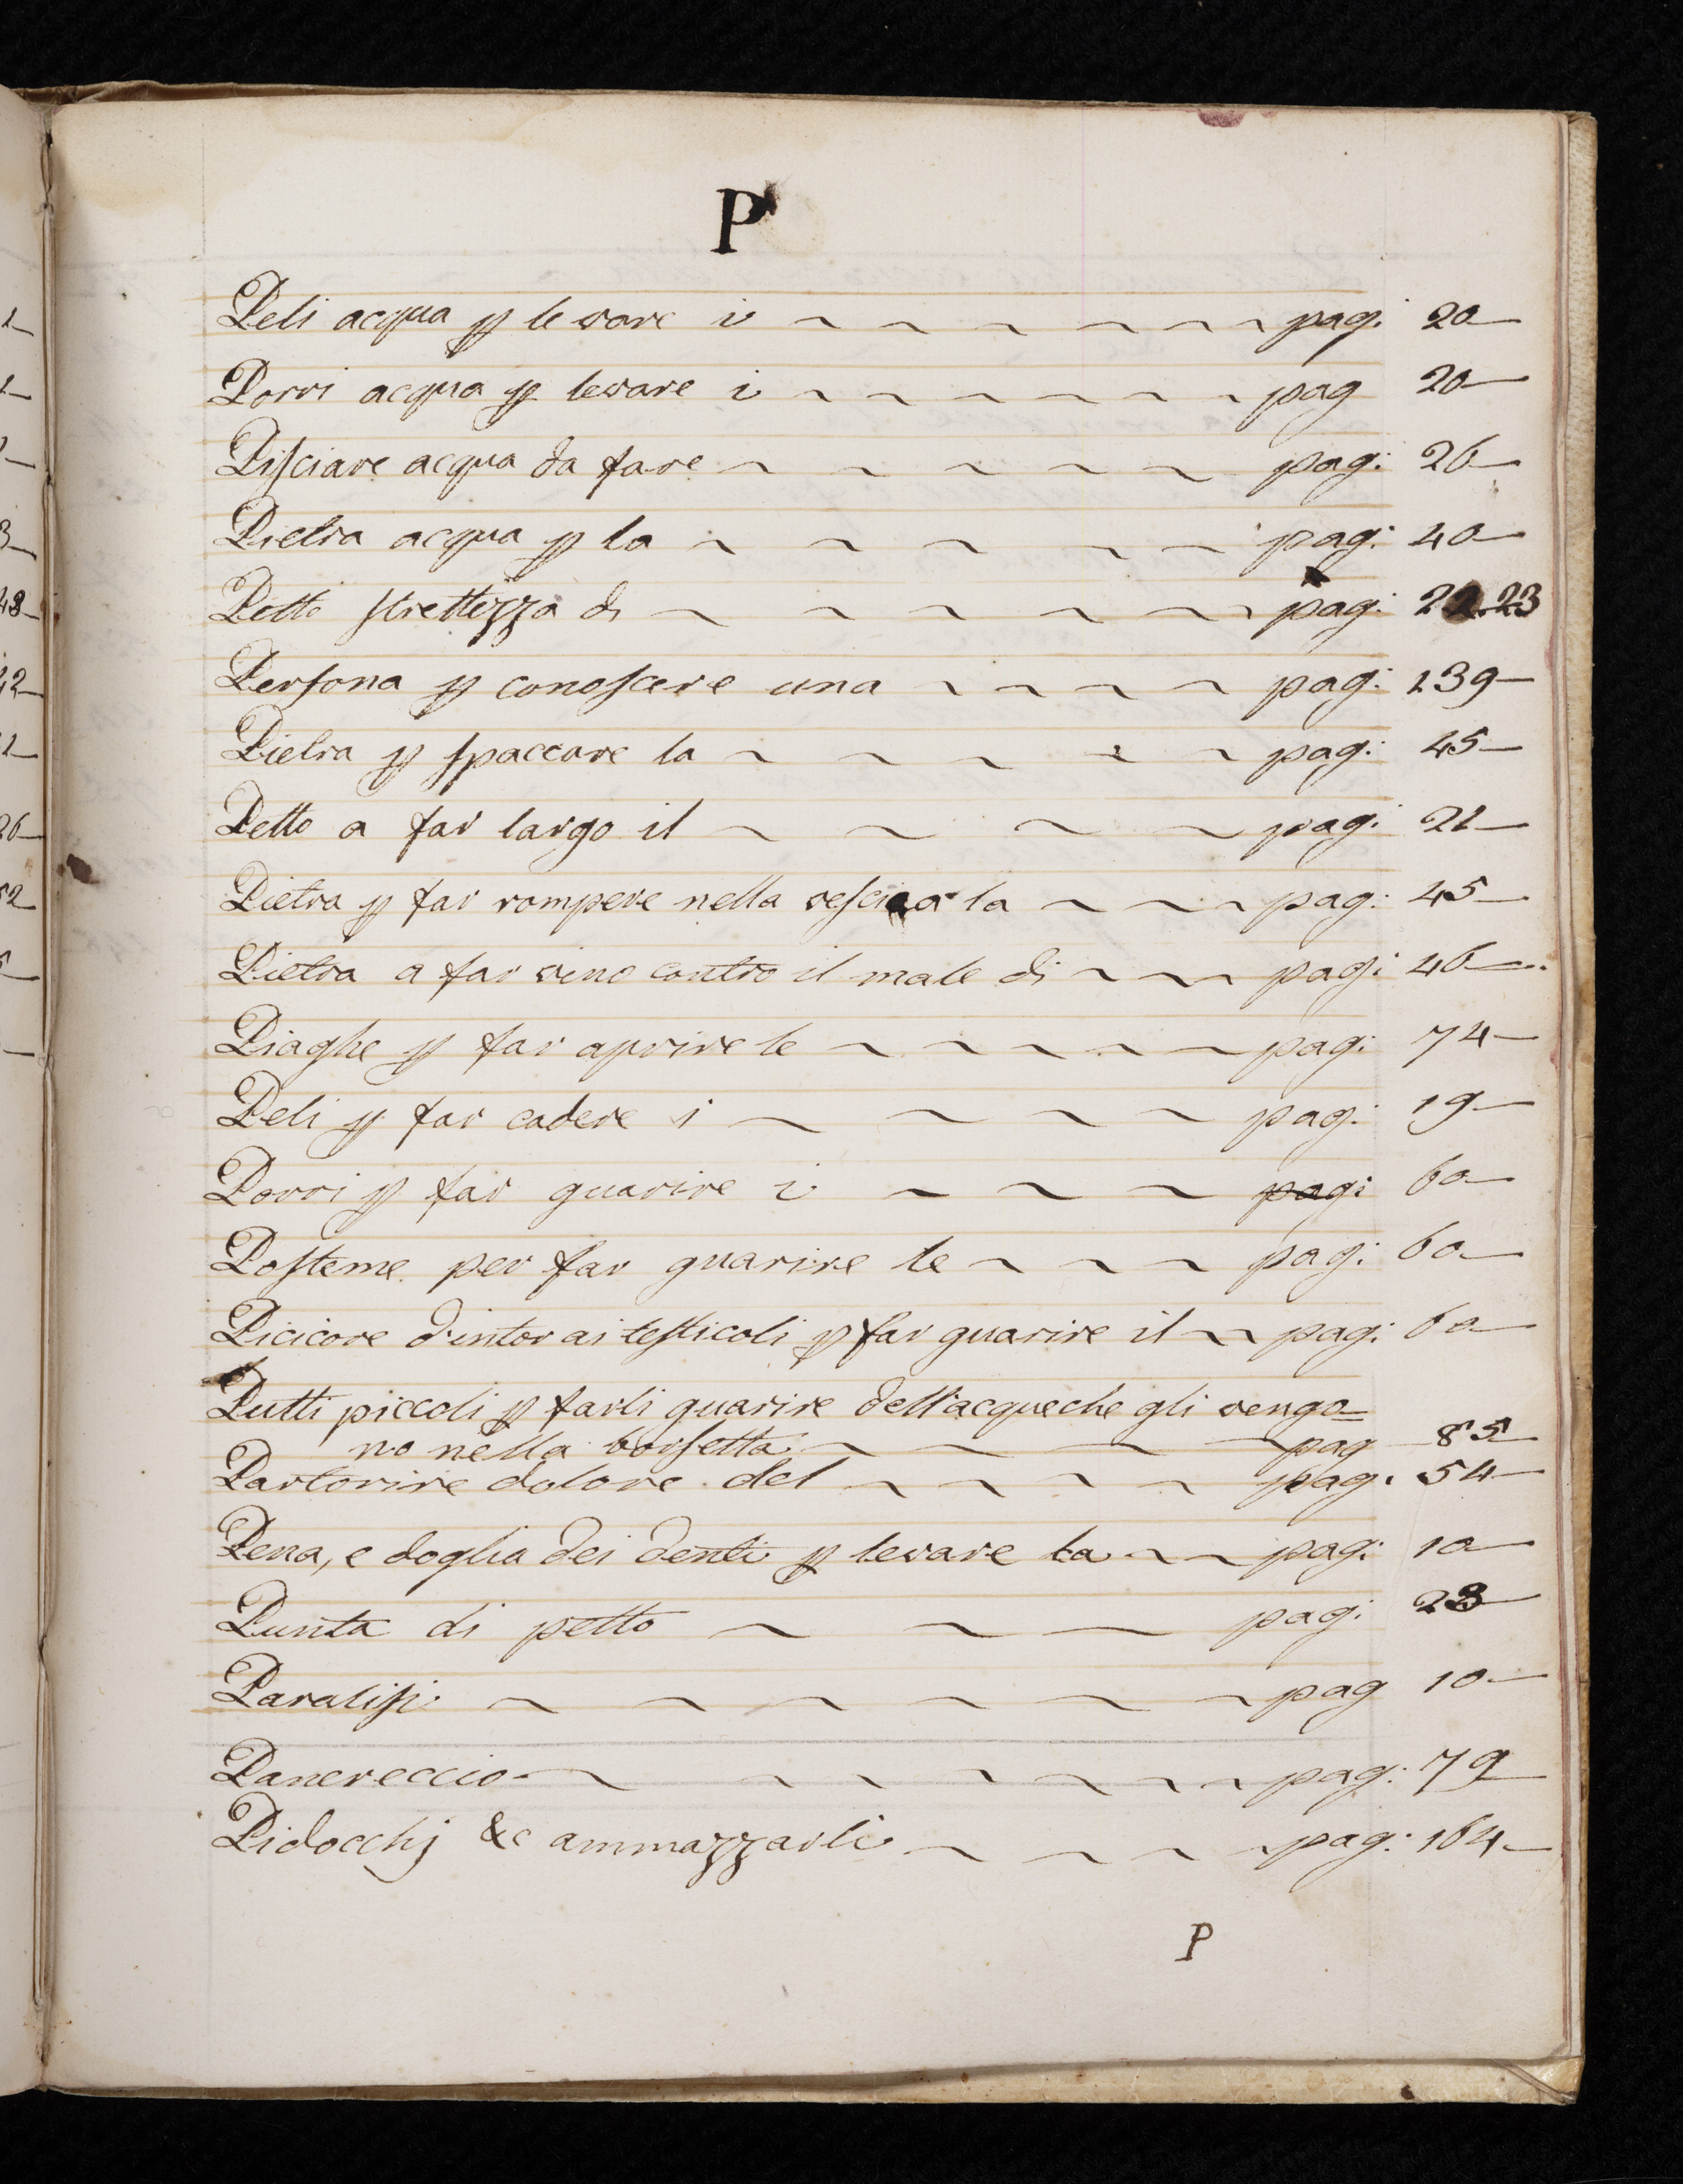 P
Peli acqua p levare i ~ ~ ~ ~ ~ ~ pag: 20—
Porri acqua p levare i ~ ~ ~ ~ ~ ~ pag 20—
Pisciare acqua da fare ~ ~ ~ ~ ~ pag: 26—
Pietra acqua p la ~ ~ ~ ~ ~ pag: 40—
Petto strettezza di ~ ~ ~ ~ ~ ~ pag: 22.23
Persona p conoscere una ~ ~ ~ ~ pag: 139—
Pietra p spaccare la ~ ~ ~ ~ ~ pag: 45—
Petto a far largo il ~ ~ ~ ~ pag: 21—
Pietra p far rompere nella vescica la ~ ~ ~ pag: 45—
Pietra a far vino contro il male di ~ ~ ~ pag: 46—
Piaghe p far aprire le ~ ~ ~ ~ ~ pag: 74—
Peli p far cadere i ~ ~ ~ ~ pag: 19—
Porri p far guarire i ~ ~ ~ pag: 60—
Posteme per far guarire le ~ ~ ~ pag: 60—
Picicore d'intor ai testicoli p far guarire il ~ ~ pag: 60—
Putti piccoli p farli guarire dell'acque che gli vengo=
no nella borsetta ~ ~ ~ ~ pag 85—
Partorire dolore del ~ ~ ~ ~ pag: 54—
Pena, e doglia dei denti p levare la ~ ~ pag: 10—
Punta di petto ~ ~ ~ pag: 23—
Paralisi ~ ~ ~ ~ ~ ~ pag 10—
Panereccio ~ ~ ~ ~ ~ ~ pag: 79
Pidocchj &c ammazzarli ~ ~ ~ ~ pag: 164—
P